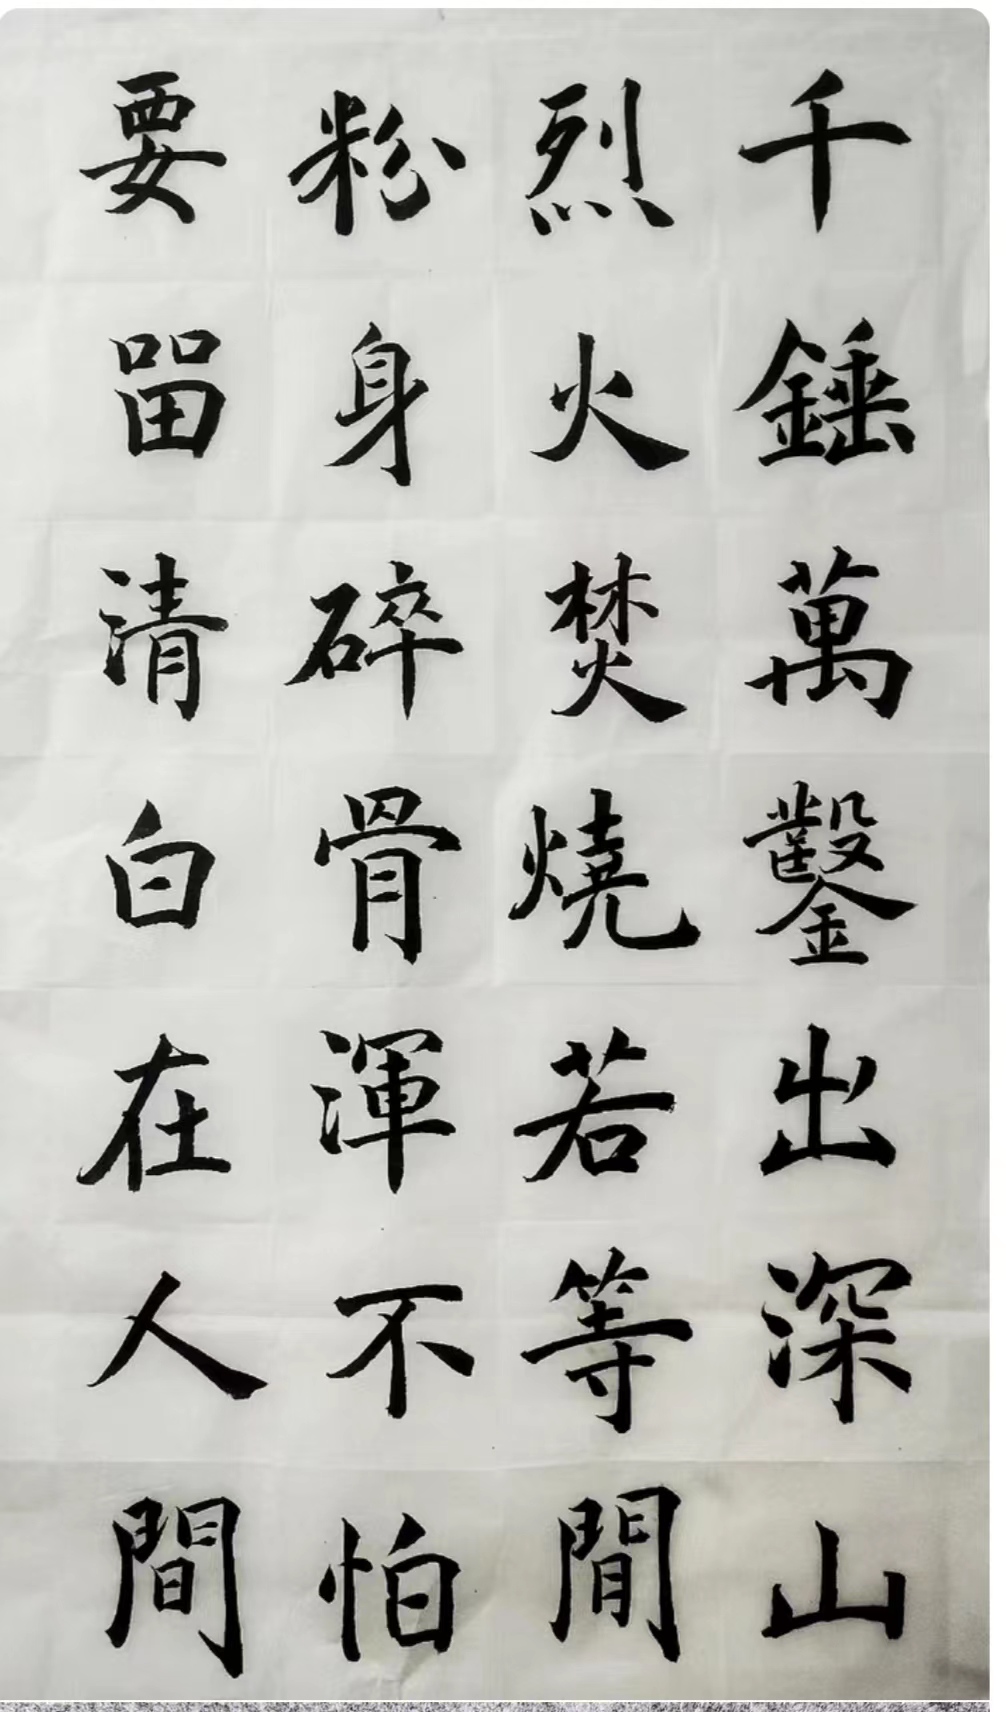 千錘萬鑿出深山
烈火焚燒若等閒
粉身碎骨渾不怕
要畱清白在人間